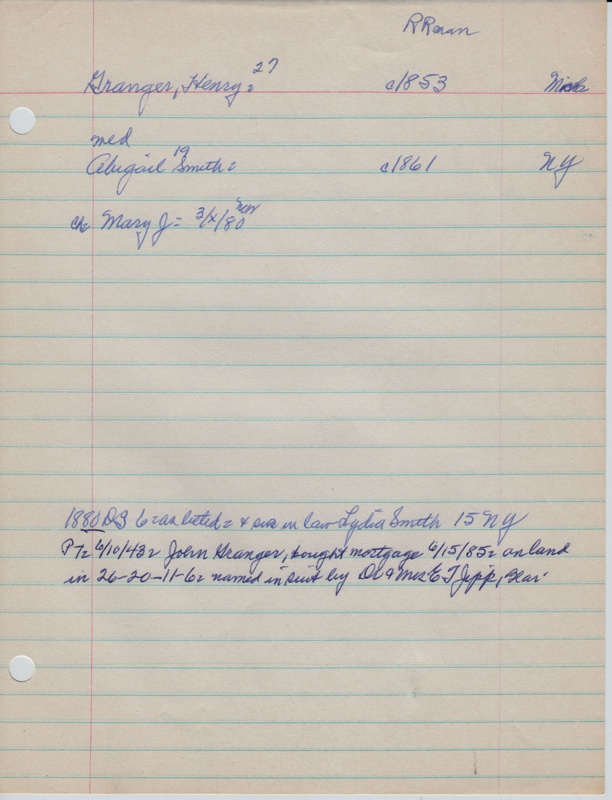 RRman
27
Granger, Henry = c1853 Mich
med
19
Abigail Smith = c1861 NY
ch = Mary J = 3/x/80
1880 DG 6 = as listed = + sis in law Lydia Smith 15 NY
PT = 6/10/43 = John Granger, bought mortgage 6/15/85 = on land
in 26-20-11-6 = named in suit by Dr & Mrs E T Jipp,